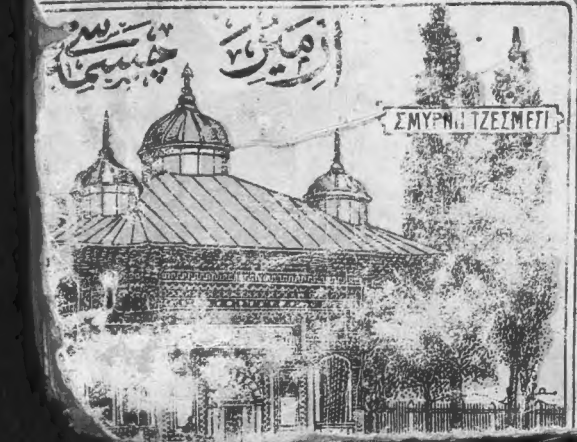 ازمير چشمه سى
ΣΜΥΡΝΗ ΤΖΕΣΜΕΣΙ